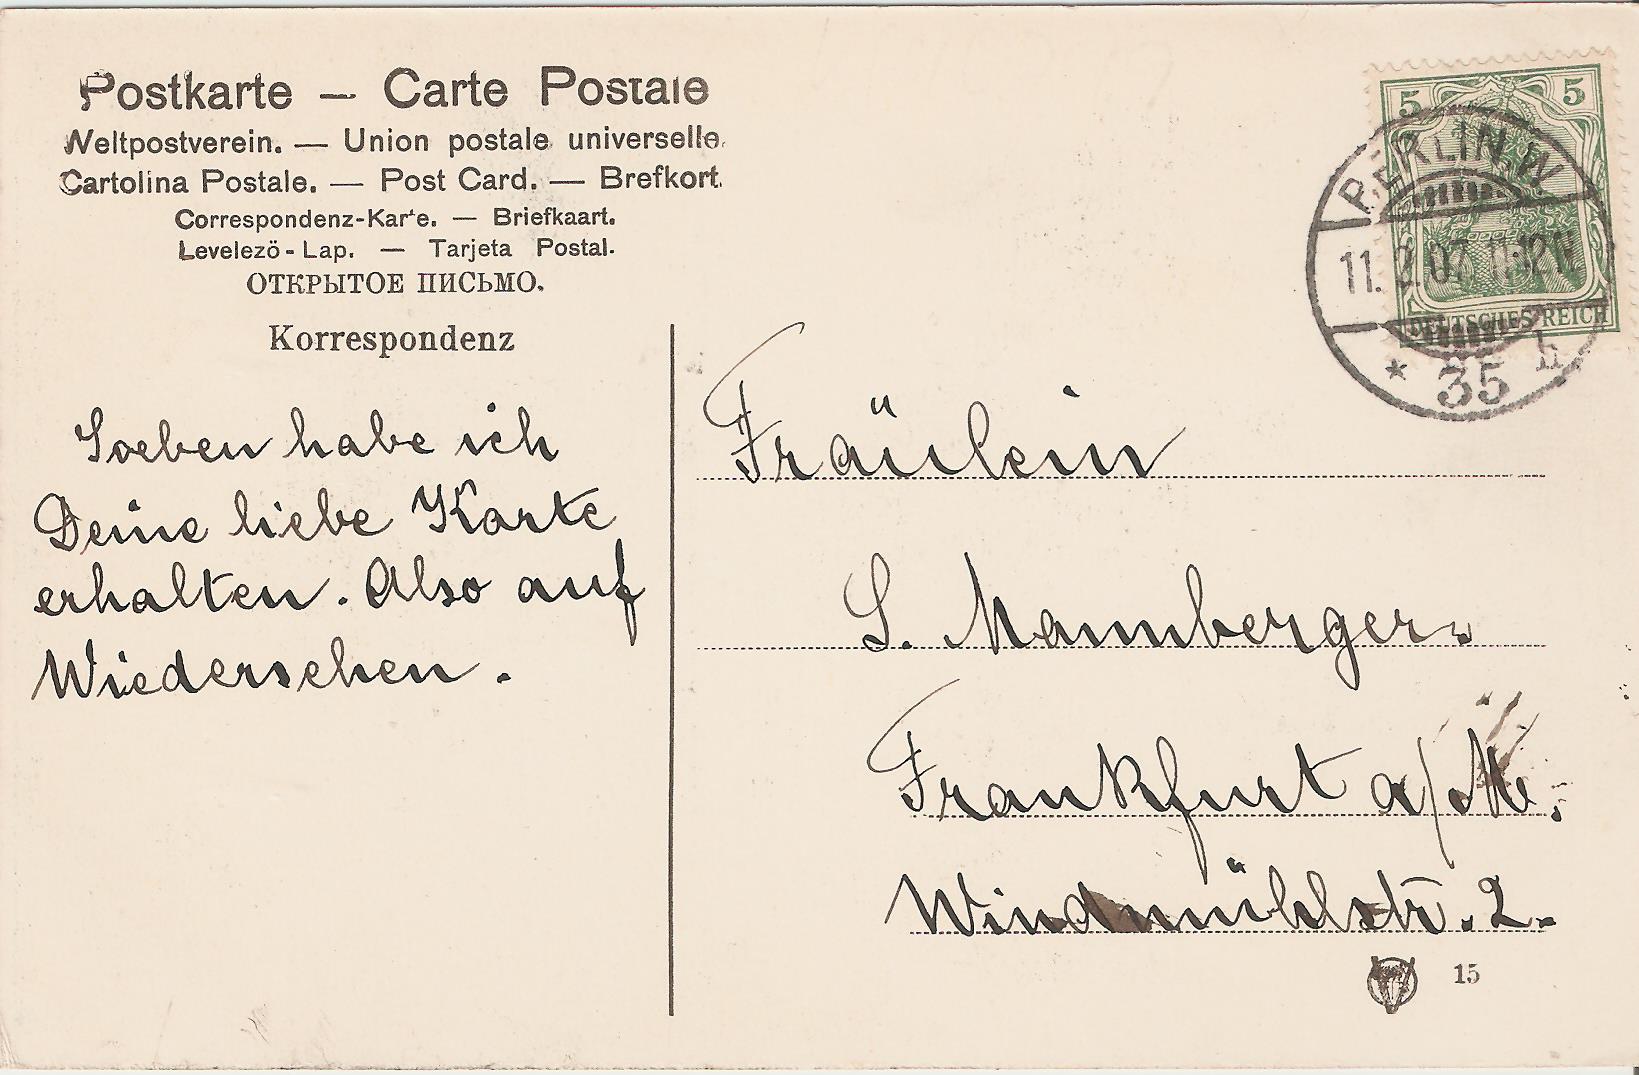 Postkarte — Carte Postale
Weltpostverein. — Union postale universelle.
Cartolina Postale. — Post Card. — Brefkort.
Correspondenz-Karte. — Briefkaart.
Levelezö-Lap. — Tarjeta Postal.
ОТКРЫТОЕ ПИСЬМО.
Korrespondenz
Soeben habe ich
Deine liebe Karte
erhalten. Also auf
Wiedersehen.
5 5
DEUTSCHES REICH
BERLIN W
11. 2. 07. 11-12 N
* 35 h
Fräulein
S. Mannberger
Frankfurt a/M.
Windmühlstr. 2.
15